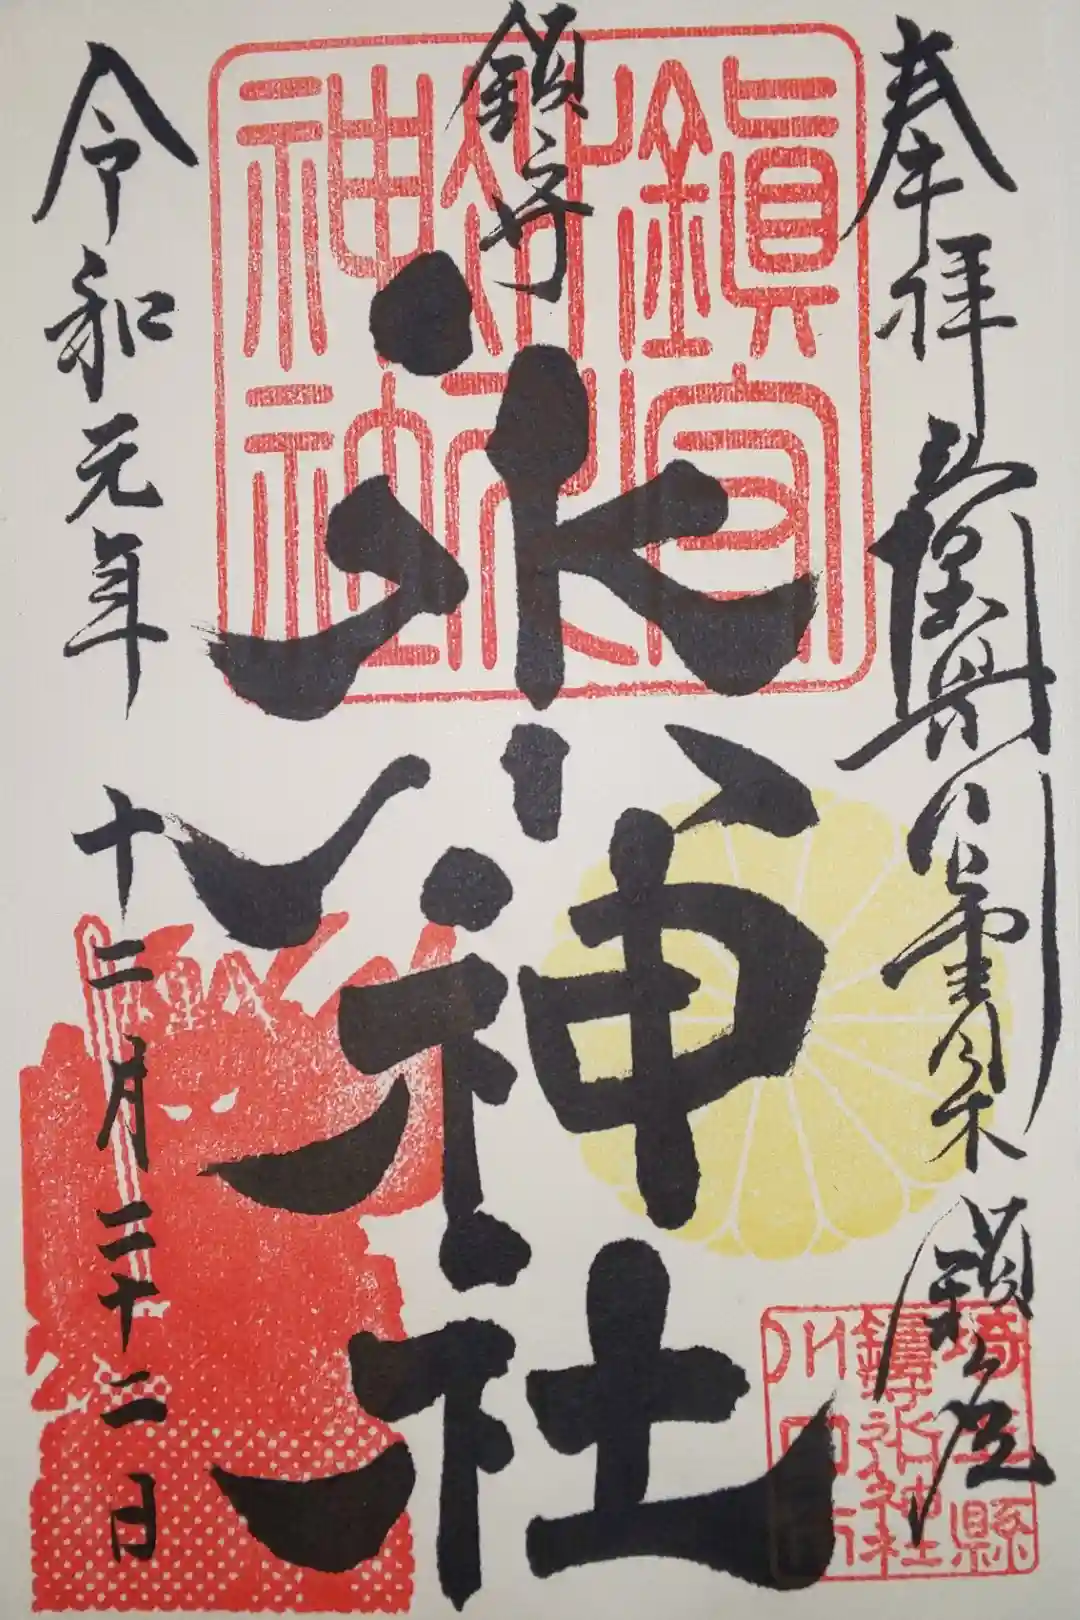 奉拝
武蔵国一宮関東鎮座
鎮守
氷川神社
令和元年
十二月二十二日
鎮守
氷川
神社
埼玉縣
鎮守氷川神社
川口市